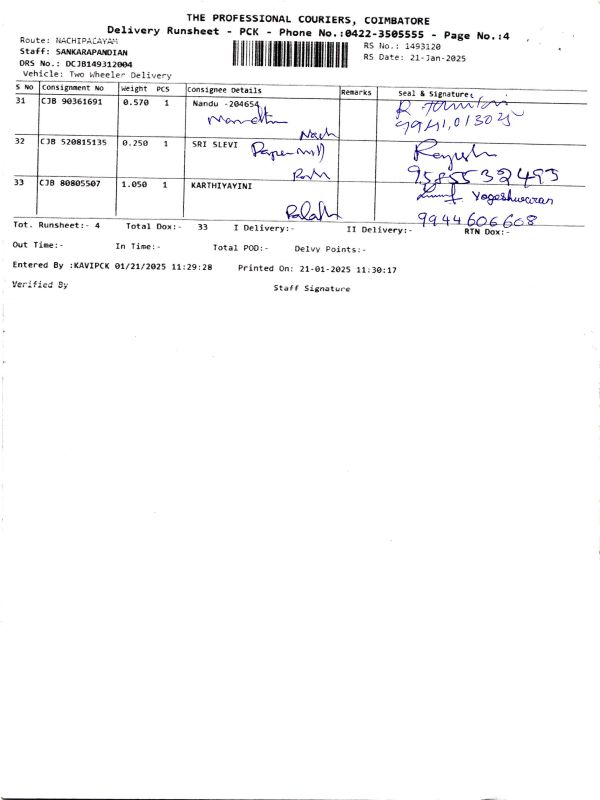 THE PROFESSIONAL COURIERS, COIMBATORE
Delivery Runsheet - PCK - Phone No.:0422-3505555 - Page No.:4
Route: NACHIPALAYAM
Staff: SANKARAPANDIAN
DRS No.: DCJB149312004
Vehicle: Two Wheeler Delivery
RS No.: 1493120
RS Date: 21-Jan-2025
S No Consignment No Weight PCS Consignee Details Remarks Seal & Signature
31 CJB 90361691 0.570 1 Nandu -204654
32 CJB 520815135 0.250 1 SRI SLEVI Papermill Rajesh
9585532493
33 CJB 80805507 1.050 1 KARTHIYAYINI Yogeshwaran
9944606608
Tot. Runsheet:- 4 Total Dox:- 33 I Delivery:- II Delivery:- RTN Dox:-
Out Time:- In Time:- Total POD:- Delvy Points:-
Entered By :KAVIPCK 01/21/2025 11:29:28 Printed On: 21-01-2025 11:30:17
Verified By Staff Signature